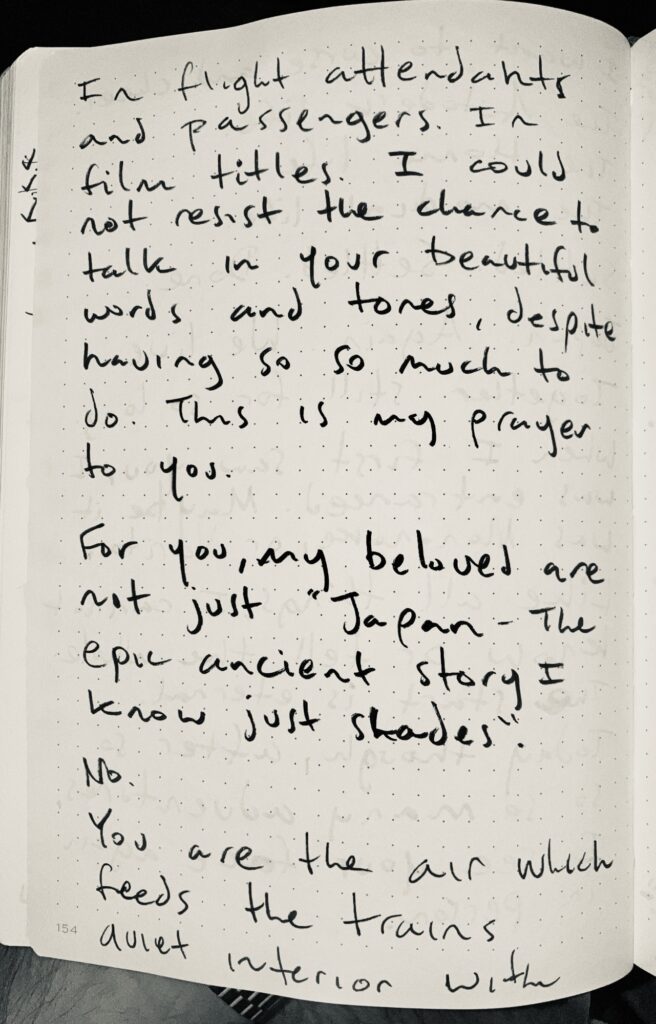 In flight attendants
and passengers. In
film titles. I could
not resist the chance to
talk in your beautiful
words and tones, despite
having so so much to
do. This is my prayer
to you.
For you, my beloved are
not just "Japan - The
epic ancient story I
know just shades".
No.
You are the air which
feeds the trains
quiet interior with
154